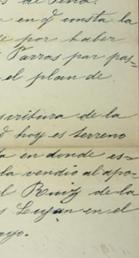 en q consta la
e por haber
Parras por pas-
el plan de
scritura de la
q hoy es terreno
a en donde es-
la vendió al apo-
el Ruiz de la
s Lujan en el
ayo.